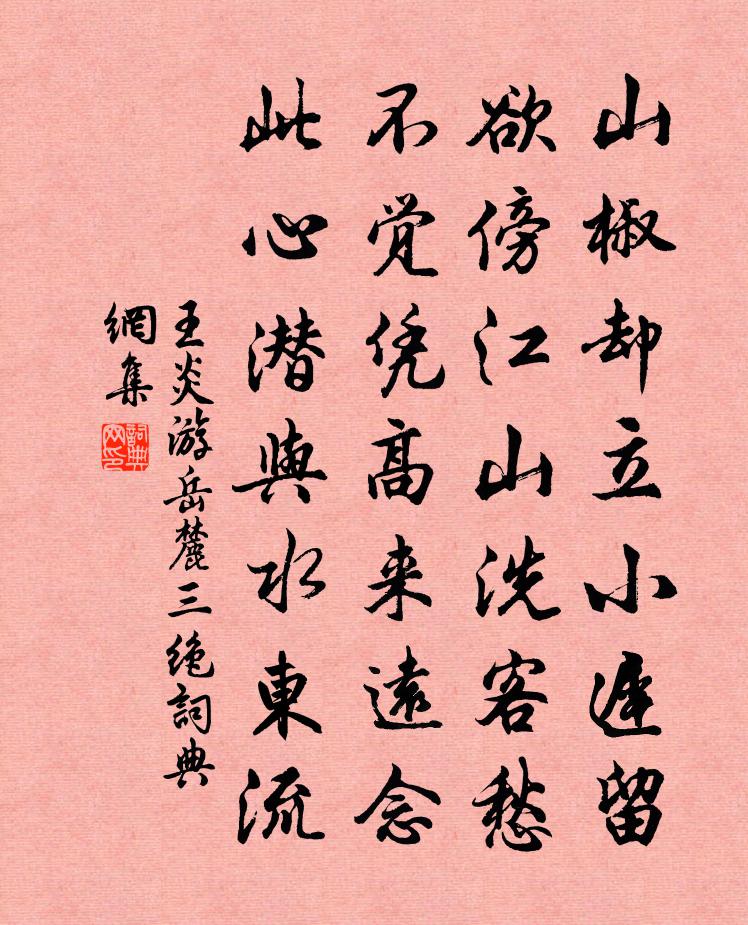 山椒却立小遲留
欲傍江山洗客愁
不觉凭高来遠念
此心潜與水東流
王炎游岳麓三绝詞典
網集
詞典網印